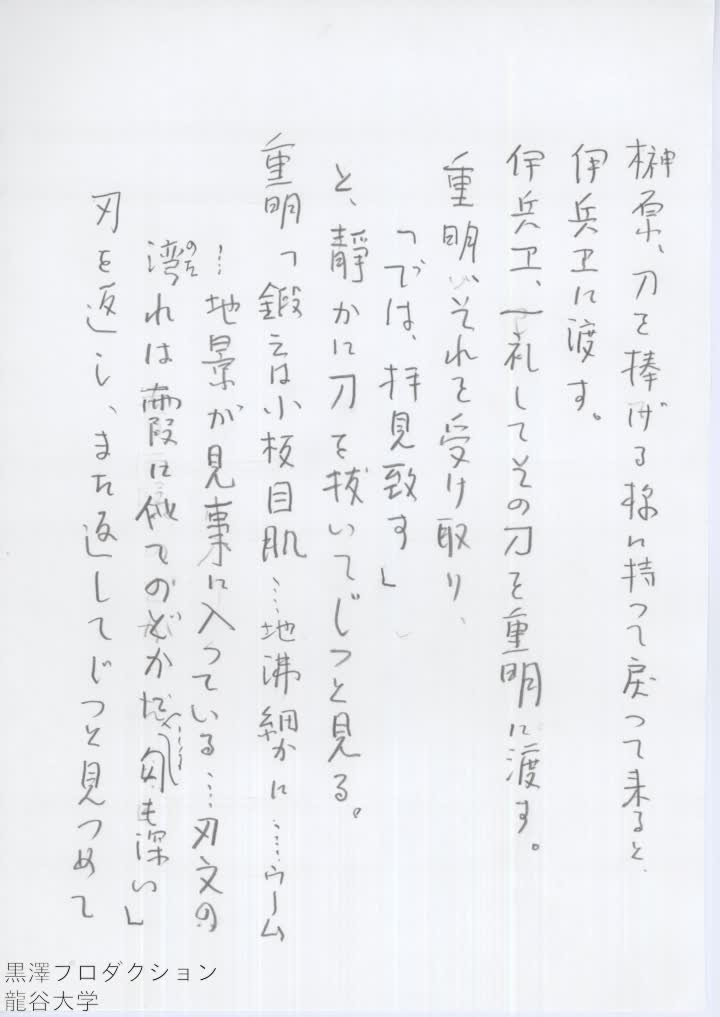 榊原、刀を捧げる様に持つて戻つて来ると、
伊兵卫に渡す。
伊兵卫、一礼してその刀を重明に渡す。
重明、それを受け取り、
「では、拝見致す」
と、靜かに刀を抜いてじつと見る。
重明「鍛えは小板目肌…地沸細かに……ウーム
…地景が見事に入っている…刃文の
湾れは霞に似てのどかだ……匂も深い」
のた
刃を返し、また返してじつと見つめて
黒澤プロダクション
龍谷大学